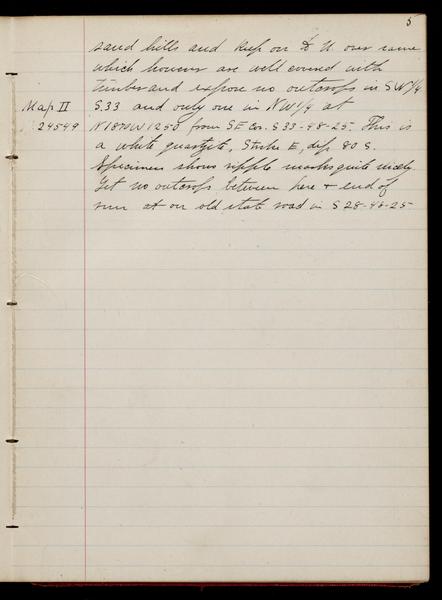 5
sand hills and keep on to N over same
which however are well covered with
timber and expose no outcrops in SW 1/4
Map II S.33 and only one in NW 1/4 at
24549 N 1870 W 1250 from SE Cor. S 33-48-25. This is
a white quartzite, Strike E, dip 80 S.
Specimen shows ripple marks quite nicely.
Get no outcrops between here + end of
run at our old state road in S 28-48-25